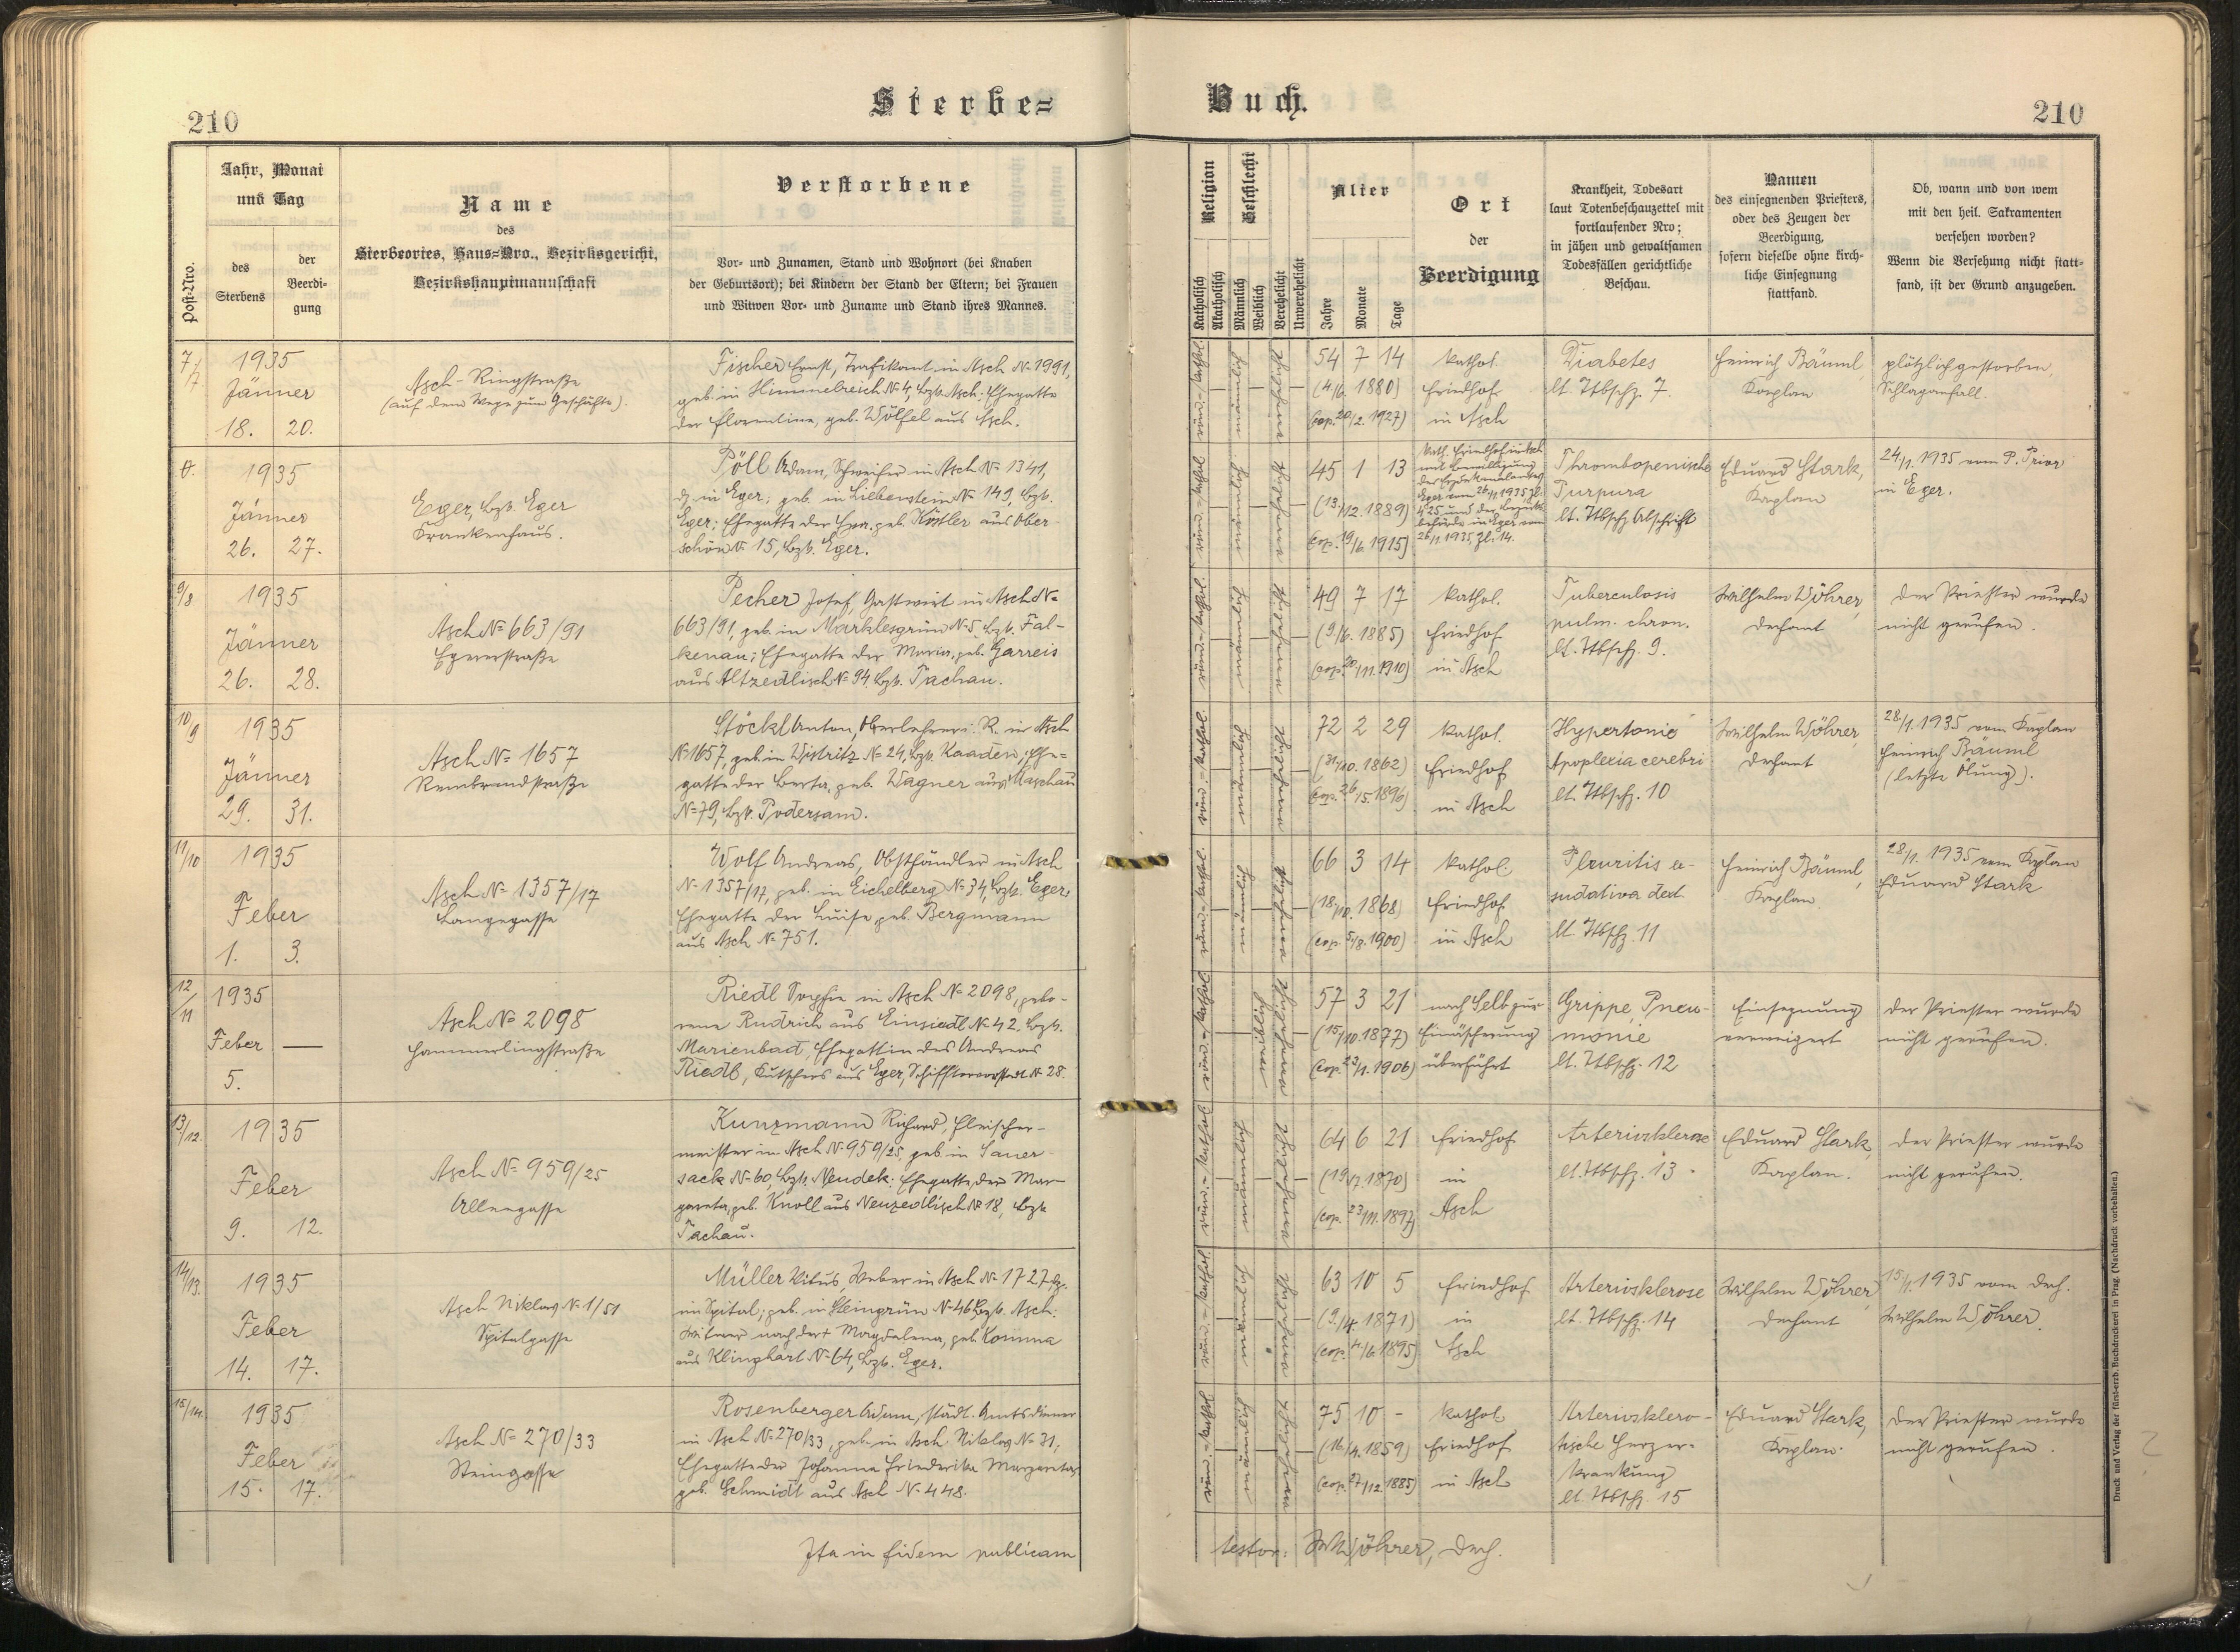 210
Sterbe=
Buch.
210
Post-Nro.
Jahr, Monat
und Tag
des
Sterbens
der
Beerdi-
gung
Name
des
Sterbeortes, Haus=Nro., Bezirksgericht,
Bezirkshauptmannschaft
Verstorbene
Vor- und Zunamen, Stand und Wohnort (bei Knaben
der Geburtsort); bei Kindern der Stand der Eltern; bei Frauen
und Witwen Vor- und Zuname und Stand ihres Mannes.
Religion
Katholisch
Akatholisch
Geschlecht
Männlich
Weiblich
Verehelicht
Unverehelicht
Alter
Jahre
Monate
Tage
Ort
der
Beerdigung
Krankheit, Todesart
laut Totenbeschauzettel mit
fortlaufender Nro;
in jähen und gewaltsamen
Todesfällen gerichtliche
Beschau.
Namen
des einsegnenden Priesters,
oder des Zeugen der
Beerdigung,
sofern dieselbe ohne kirch-
liche Einsegnung
stattfand.
Ob, wann und von wem
mit den heil. Sakramenten
versehen worden?
Wenn die Versehung nicht statt-
fand, ist der Grund anzugeben.
7./7.
1935
Jänner
18. 20.
Asch-Ringstraße
(auf dem Wege zum Geschäfte).
Fischer Ernst, Trafikant in Asch No 1991,
geb. in Himmelreich No 4, Bzk. Asch. Ehegatte
der Florentine, geb. Wölfel aus Asch.
röm.-kathol.
54 7 14
(4/6. 1880)
(cop. 20/2. 1927)
kathol.
Friedhof
in Asch
Diabetes
lt. Ttbschz. 7.
Heinrich Bäuml,
Kaplan
plötzlich gestorben,
Schlaganfall.
1935
Jänner
26. 27.
Eger, Bzk. Eger
Krankenhaus.
Pöll Adam, Schweifer in Asch No 1341,
dz. in Eger; geb. in Liebenstein No 149, Bzk.
Eger; Ehegatte der Eva, geb. Köstler aus Ober-
schön No 15, Bzk. Eger.
röm.-kathol.
45 1 13
(13/12. 1889)
(cop. 19/6. 1915)
kath. Friedhof in Asch
mit Bewilligung
Eger vom 26/1. 1935, Zl.
425 und der Bezirks-
behörde in Eger vom
26/1. 1935, Zl. 14.
Thrombopenische
Purpura
lt. Ttbschz Abschrift
Eduard Stark,
Kaplan
24./1. 1935 vom P. Prior
in Eger.
9/8
1935
Jänner
26. 28.
Asch No 663/91
Egererstraße
Pecher Josef, Gastwirt in Asch No
663/91, geb. in Marklesgrün No 5, Bzk. Fal-
kenau; Ehegatte der Maria, geb. Garreis
aus Altzedlisch No 94, Bzk. Tachau.
röm.-kathol.
49 7 17
(9/6. 1885)
(cop. 20/11. 1910)
kathol.
Friedhof
in Asch
Tuberculosis
pulm. chron.
lt. Ttbschz. 9.
Wilhelm Wöhrer,
Dechant
Der Priester wurde
nicht gerufen.
10/9
1935
Jänner
29. 31.
Asch No 1657
Rembrandstraße
Stöckl Anton, Oberlehrer i. R. in Asch
No 1657, geb. in Wistritz No 24, Bzk. Kaaden; Ehe-
gatte der Berta, geb. Wagner aus Maschau
No 79, Bzk. Podersam.
röm.-kathol.
72 2 29
(31/10. 1862)
(cop. 26/5. 1896)
kathol.
Friedhof
in Asch
Hypertonie
Apoplexia cerebri
lt. Ttbschz. 10
Wilhelm Wöhrer,
Dechant
28/1. 1935 vom Kaplan
Heinrich Bäuml
(letzte Ölung).
11/10
1935
Feber
1. 3.
Asch No 1357/17
Langegasse
Wolf Andreas, Obsthändler in Asch
No 1357/17, geb. in Eichelberg No 34, Bzk. Eger,
Ehegatte der Luise, geb. Bergmann
aus Asch No 751.
röm.-kathol.
66 3 14
(18/10. 1868)
(cop. 5/8. 1900)
kathol.
Friedhof
in Asch
Pleuritis ex-
sudativa dext.
lt. Ttbschz. 11
Heinrich Bäuml,
Kaplan.
28/1. 1935 vom Kaplan
Eduard Stark
12/11
1935
Feber —
5.
Asch No 2098
Hammerlingstraße
Riedl Sophie in Asch No 2098, gebo-
rene Rudrich aus Einsiedl No 42, Bzk.
Marienbad, Ehegattin des Andreas
Riedl, Kutschers aus Eger, Schifftorvorstadt No 28.
röm.-kathol.
57 3 21
(15/10. 1877)
(cop. 23/1. 1906)
nach Selb zur
Einäscherung
überführt
Grippe, Pneu-
monie
lt. Ttbschz. 12
Einsegnung
verweigert
Der Priester wurde
nicht gerufen.
13/12.
1935
Feber
9. 12.
Asch No 959/25
Alleegasse
Kunzmann Richard, Fleischer-
meister in Asch No 959/25, geb. in Sauer-
sack No 60, Bzk. Neudek; Ehegatte der Mar-
gareta, geb. Knoll aus Neuzedlisch No 18, Bzk.
Tachau.
röm.-kathol.
64 6 21
(19/7. 1870)
(cop. 23/11. 1897)
Friedhof
in
Asch
Arteriosklerose
lt. Ttbschz. 13
Eduard Stark,
Kaplan.
Der Priester wurde
nicht gerufen.
14/13.
1935
Feber
14. 17.
Asch Niklas No 1/51
Spitalgasse
Müller Vitus, Weber in Asch No 1727, dz.
im Spital; geb. in Steingrün No 46, Bzk. Asch;
Witwer nach der † Magdalena, geb. Komma
aus Klinghart No 64, Bzk. Eger.
röm.-kathol.
63 10 5
(9./4. 1871)
(cop. 4/6. 1895)
Friedhof
in
Asch
Arteriosklerose
lt. Ttbschz. 14
Wilhelm Wöhrer,
Dechant
15/1. 1935 vom Dech.
Wilhelm Wöhrer.
15/14.
1935
Feber
15. 17.
Asch No 270/33
Steingasse
Rosenberger Adam, städt. Amtsdiener
in Asch No 270/33, geb. in Asch Niklas No 31;
Ehegatte der Johanna Friederika Margareta,
geb. Schmidt aus Asch No 448.
röm.-kathol.
75 10 -
(16/4. 1859)
(cop. 27/12. 1885)
kathol.
Friedhof
in Asch
Arterioskléro-
tische Herzer-
krankung
lt. Ttbschz. 15
Eduard Stark,
Kaplan.
Der Priester wurde
nicht gerufen.
Ita in fidem publicam
testor: W. Wöhrer, Dech.
Druck und Verlag der fürst-erzb. Buchdruckerei in Prag. (Nachdruck vorbehalten.)